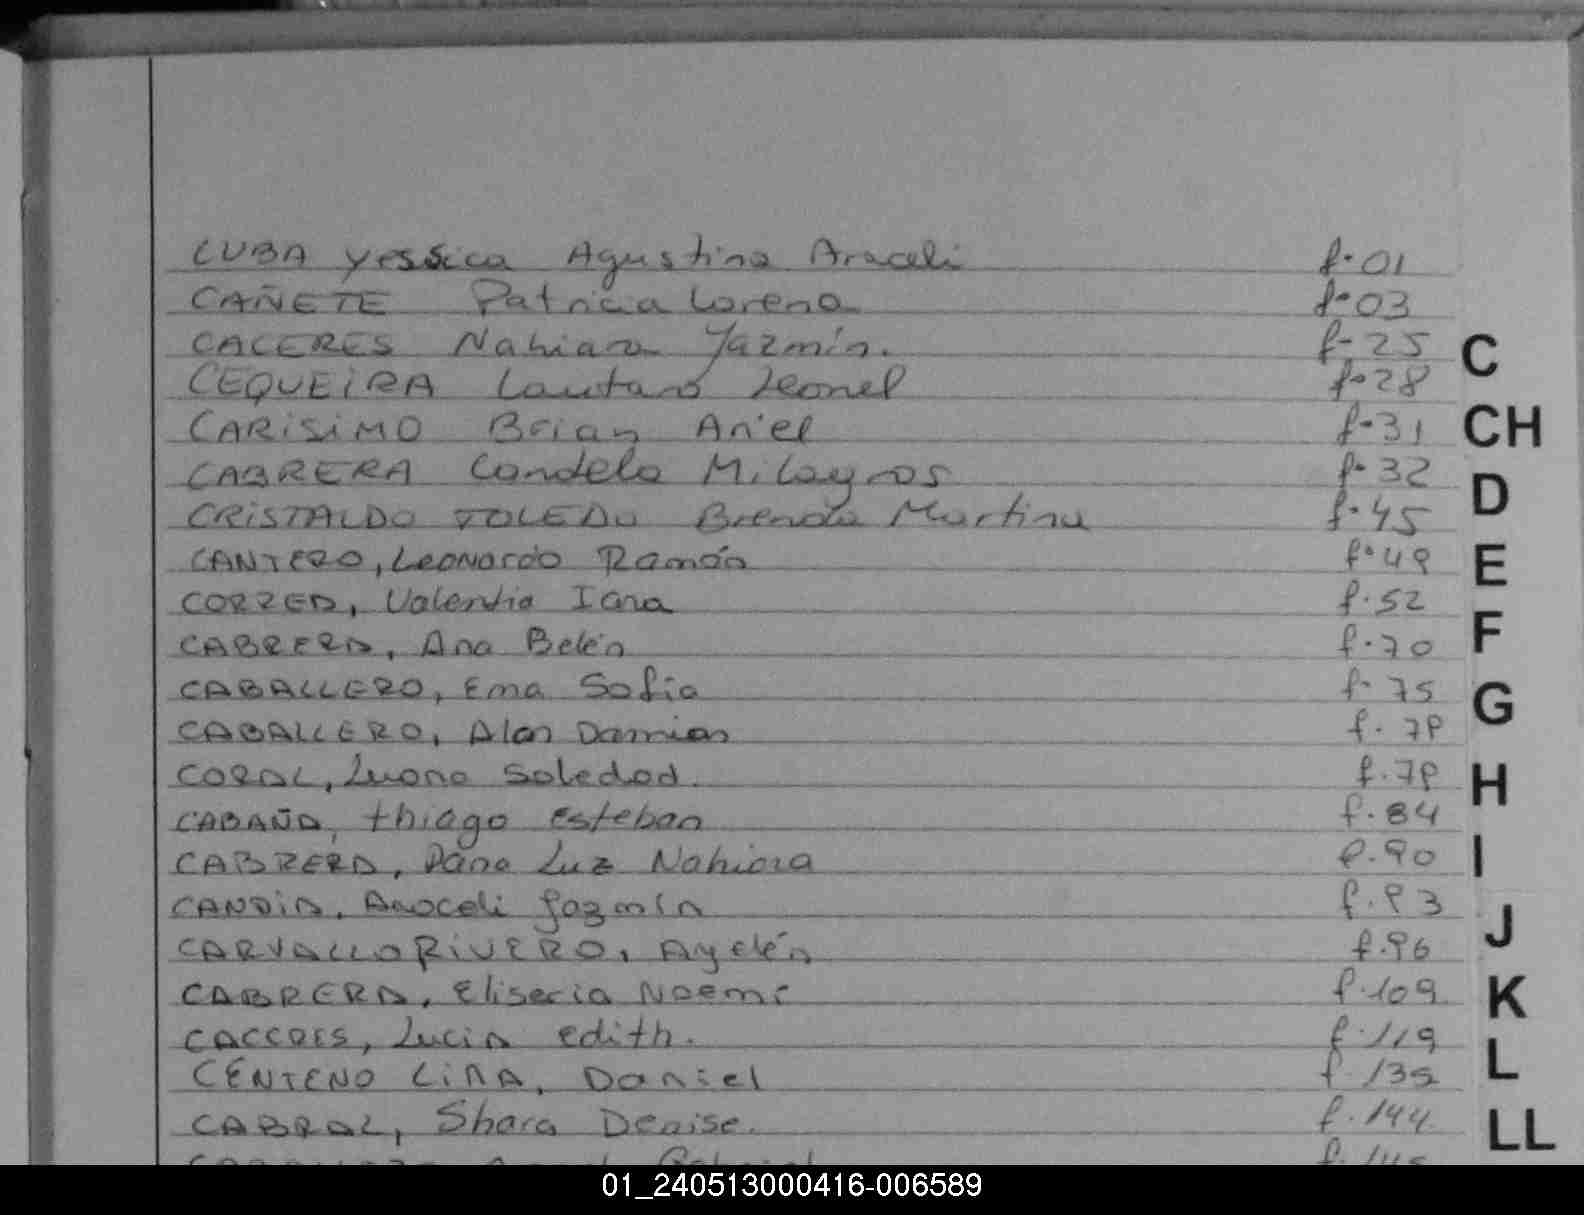 CUBA Yessica Agustina Araceli f.01
CAÑETE Patricia Lorena f.03
CACERES Nahiara Yazmín. f-25
C
CEQUEIRA Lautaro Leonel f.28
CARISIMO Brian Ariel f.31
CH
CABRERA Candela Milagros f.32
CRISTALDO TOLEDO Brenda Martina f.45
D
CANTERO, Leonardo Ramón f.49
E
CORZED, Valentia Iara f.52
CABRERA, Ana Belén f.70
F
CABALLERO, Ema Sofia f.75
G
CABALLERO, Alan Damian f.79
CORAL, Luana Soledad. f.79
H
CABAÑA, thiago Esteban f.84
CABRERA, Dana Luz Nahiara f.90
I
CANDIA, Araceli Jazmín f.93
J
CARVALLO RIVERO, Ayelén f.96
CABRERA, Eliseria Noemi f.109
K
Lucia Edith. f.119
L
CENTENO LIRA, Daniel f.135
CABRAL, Shara Denise. f.144
LL
f.145
01_240513000416-006589